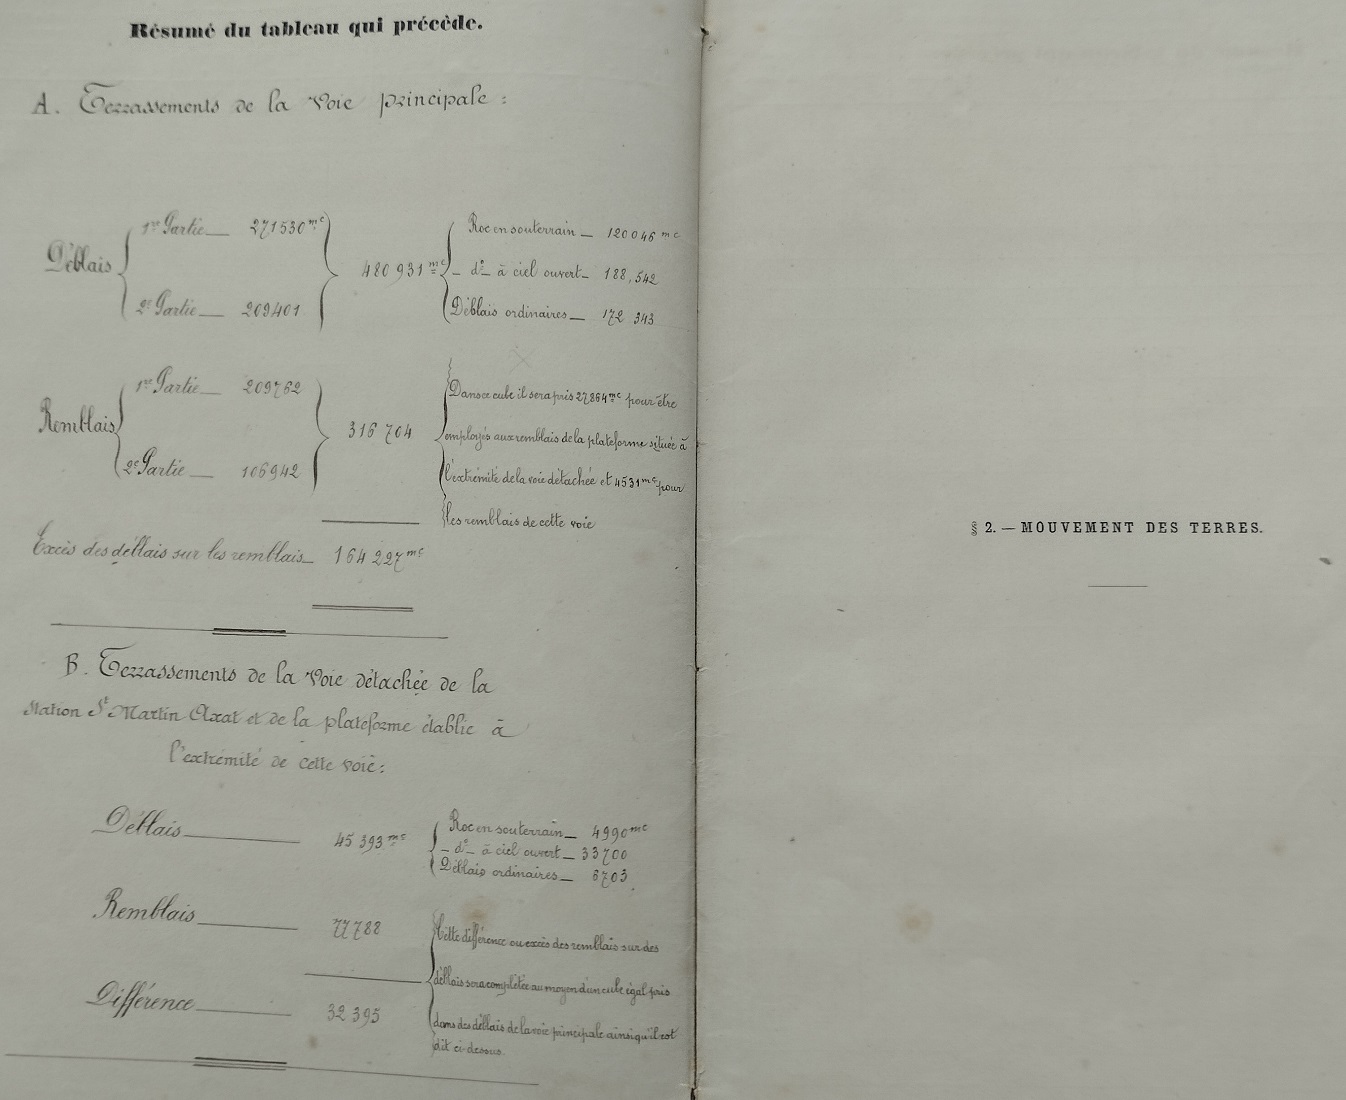 Résumé du tableau qui précède.
A. Terrassements de la Voie principale :
Déblais
1re Partie — 271530 mc
2e Partie — 209401
480 931 mc
Roc en souterrain — 120046 mc
— do — à ciel ouvert — 188,542
Déblais ordinaires — 172 343
Remblais
1re Partie — 209762
2e Partie — 106942
316 704
Dans ce cube il sera pris 27,864 mc pour être
employés aux remblais de la plateforme située à
l'extrémité de la voie détachée et 4531 mc pour
les remblais de cette voie
Excès des déblais sur les remblais — 164 227 mc
B. Terrassements de la Voie détachée de la
station St Martin Axat et de la plateforme établie à
l'extrémité de cette voie :
Déblais — 45 393 mc
Roc en souterrain — 4990 mc
— do — à ciel ouvert — 33700
Déblais ordinaires — 6703
Remblais — 77788
Différence — 32 395
Cette différence ou excès des remblais sur des
déblais sera complétée au moyen d'un cube égal pris
dans des déblais de la voie principale ainsi qu'il est
dit ci-dessus.
§ 2. — MOUVEMENT DES TERRES.